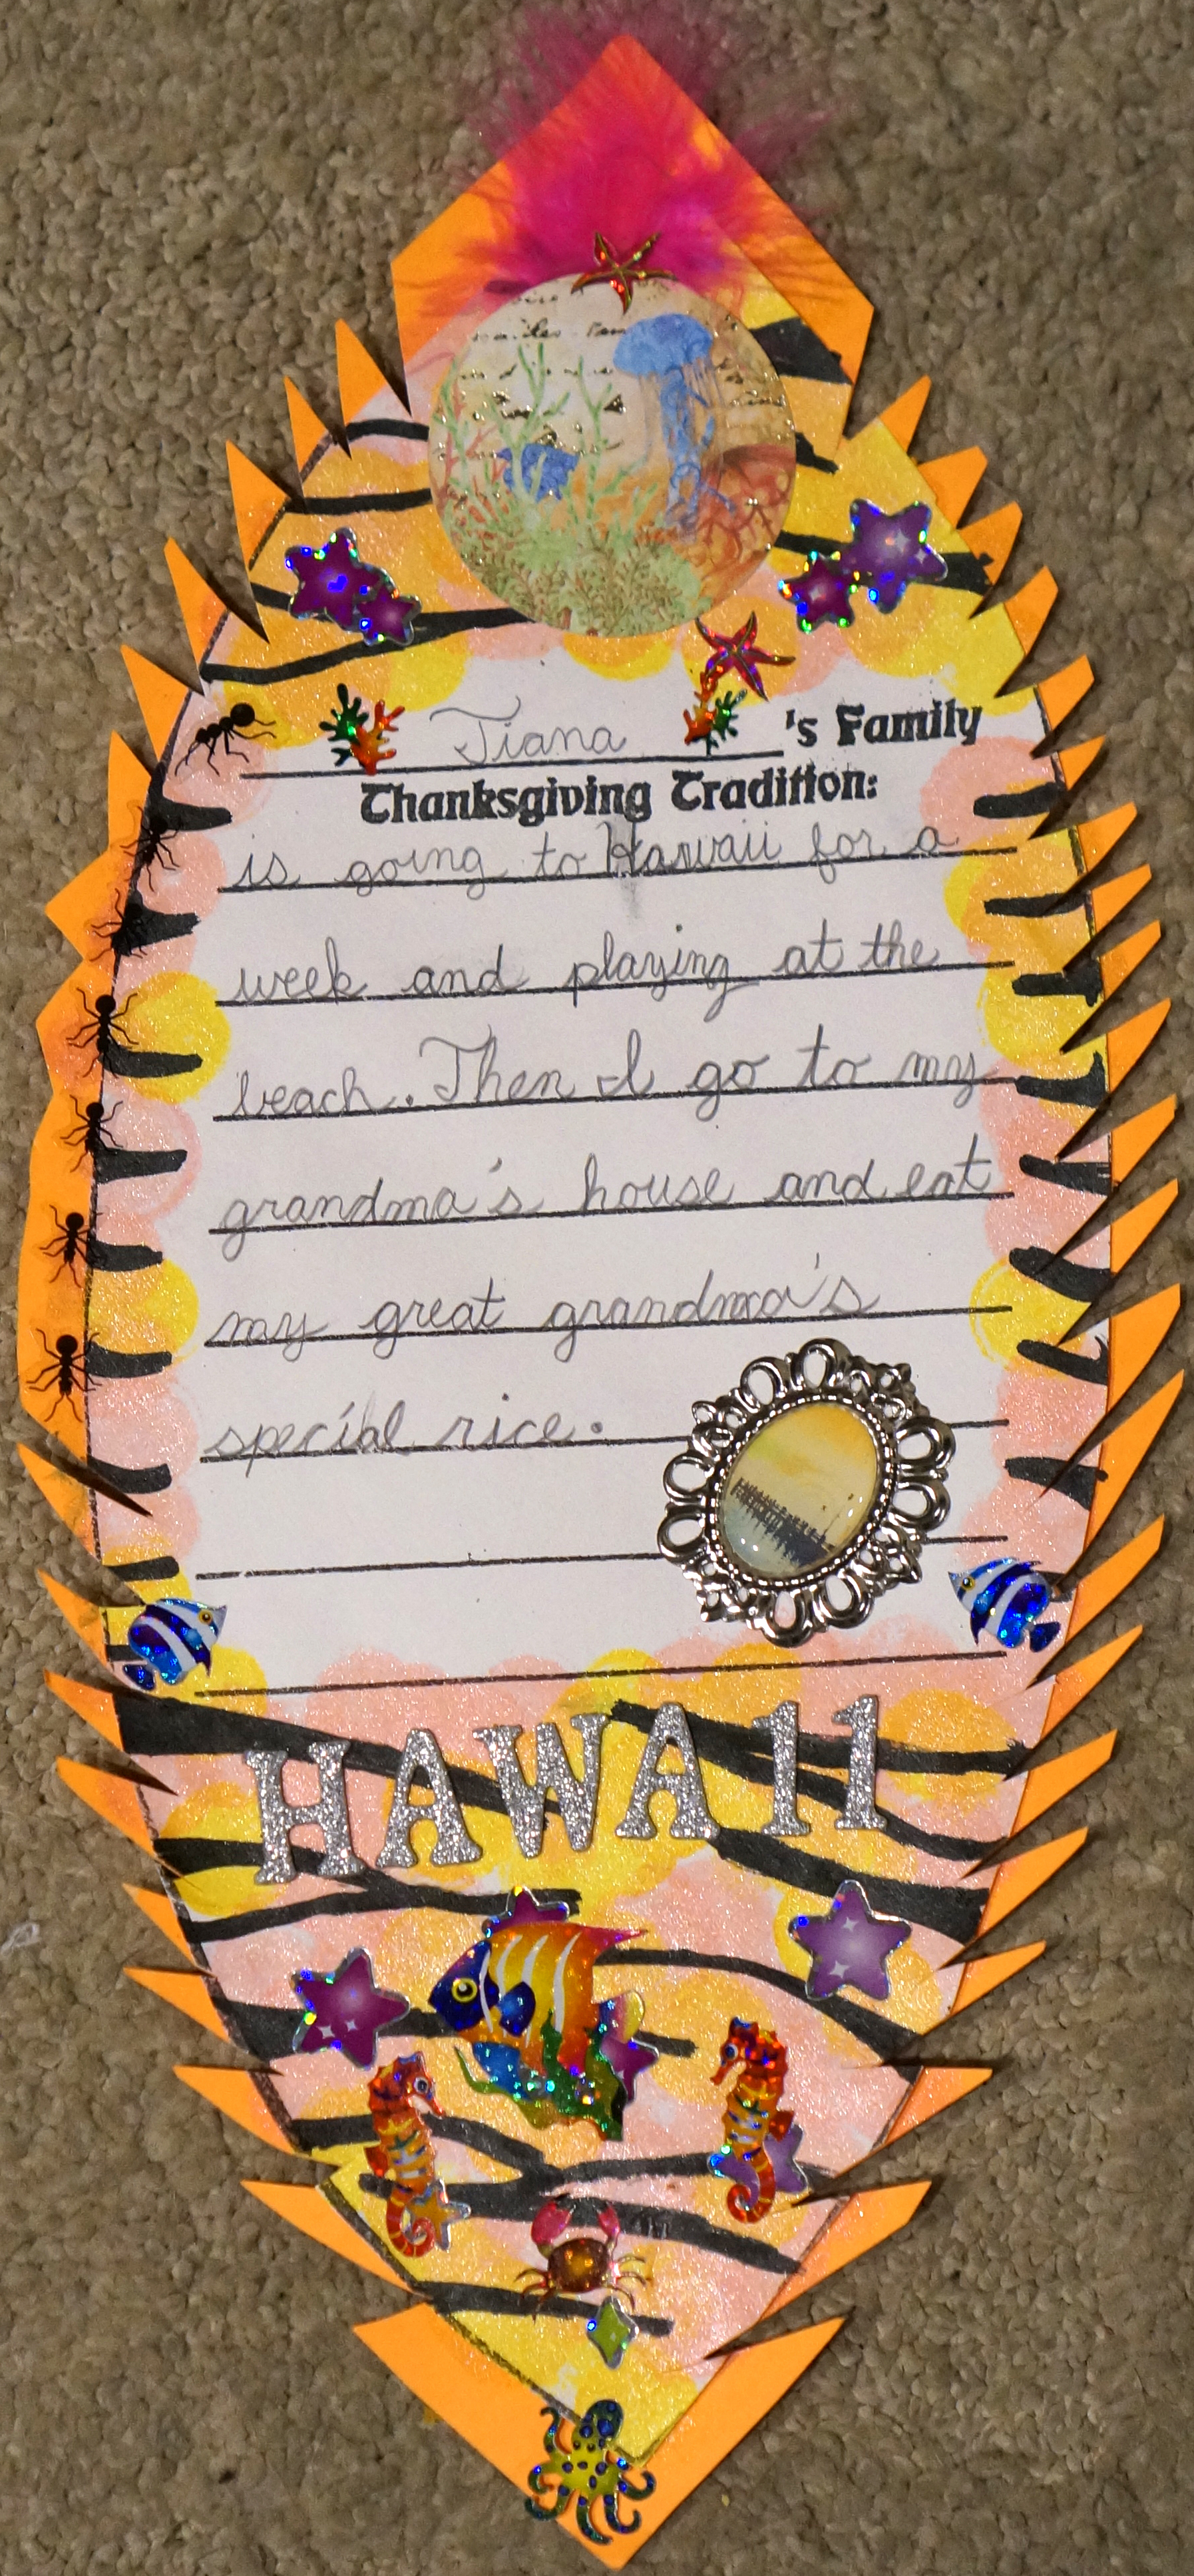 Tiana 's Family
Thanksgiving Tradition:
is going to Hawaii for a
week and playing at the
beach. Then I go to my
grandma's house and eat
my great grandma's
special rice.
HAWAII